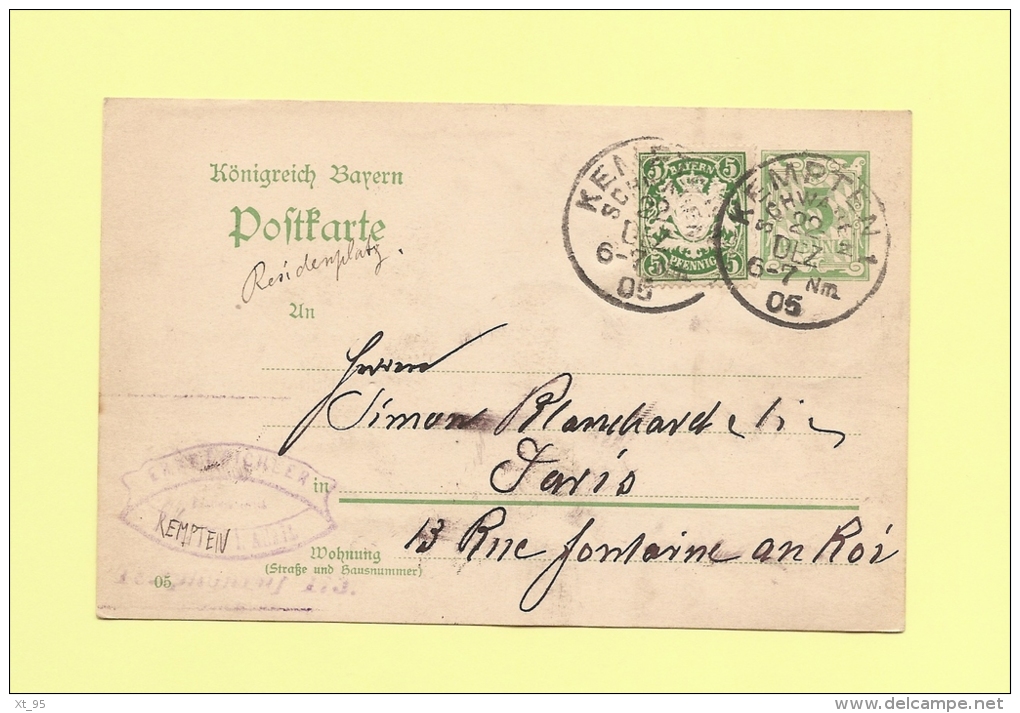 Königreich Bayern
Postkarte
Residenplatz.
An
KEMPTEN
SCHWABEN
22
DEZ
6-7 Nm.
05
5 BAYERN 5
5 PFENNIG 5
KEMPTEN 1
SCHWABEN
22
DEZ
6-7 Nm.
05
Herren
Simon Blanchard & Cie
in Paris
KEMPTEN
Wohnung
(Straße und Hausnummer)
13 Rue fontaine au Roi
05
Xt_95
delcampe.net